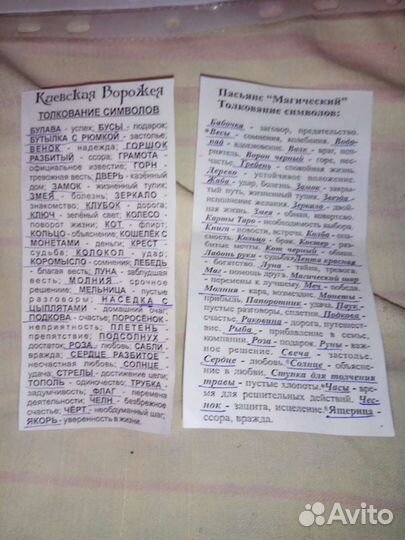 Киевская Ворожея
ТОЛКОВАНИЕ СИМВОЛОВ
БУЛАВА - успех; БУСЫ - подарок;
БУТЫЛКА С РЮМКОЙ - застолье;
ВЕНОК - надежда; ГОРШОК
РАЗБИТЫЙ - ссора; ГРАМОТА -
официальное известие; ГОРН -
тревожная весть; ДВЕРЬ - казённый
дом; ЗАМОК - жизненный тупик;
ЗМЕЯ - болезнь; ЗЕРКАЛО -
знакомство; КЛУБОК - дорога;
КЛЮЧ - зелёный свет; КОЛЕСО -
поворот жизни; КОТ - флирт;
КОЛЬЦО - объяснение; КОШЕЛЕК С
МОНЕТАМИ - деньги; КРЕСТ -
судьба; КОЛОКОЛ - удар;
КОРОМЫСЛО - сомнения; ЛЕБЕДЬ
- благая весть; ЛУНА - заблудшая
весть; МОЛНИЯ - срочное
решение; МЕЛЬНИЦА - пустые
разговоры; НАСЕДКА С
ЦЫПЛЯТАМИ - домашний очаг;
ПОДКОВА - счастье; ПОРОСЁНОК-
неприятность; ПЛЕТЕНЬ -
препятствие; ПОДСОЛНУХ -
достаток; РОЗА - любовь; САБЛИ -
вражда; СЕРДЦЕ РАЗБИТОЕ -
несчастная любовь; СОЛНЦЕ -
удача; СТРЕЛЫ - достижение цели;
ТОПОЛЬ - одиночество; ТРУБКА -
задумчивость; ФЛАГ - перемена
деятельности; ЧЕЛН - безбрежное
счастье; ЧЁРТ - необдуманный шаг;
ЯКОРЬ - уверенность в жизни.
Пасьянс "Магический"
Толкование символов:
Бабочка - заговор, предательство.
Весы - сомнения, колебания. Водо-
пад - вдохновение. Волк - враг, не-
приятель. Ворон черный - горе, нес-
частье. Гребень - спокойная жизнь.
Дерево - устойчивое положение.
Жаба - удар, болезнь. Замок - закры-
тый путь, жизненный тупик. Звезда -
исполнение желания. Зеркало - двой-
ная жизнь. Змея - обман, коварство.
Карты Таро - необходимость выбора.
Книги - новости, встреча. Колба -
Кольцо - брак. Костер -
битые мечты. Кот черный - обман.
Ладонь руки - судьба. Лента красная
- богатство. Луна - тайна, тревога.
Маг - помощь друга. Магический шар
- перемены к лучшему. Меч - победа.
Молния - кара, возмездие. Монеты -
прибыль. Папоротник - удача. Паук -
пустые разговоры, сплетни. Подкова -
счастье. Раковина - дорога, путешест-
вие. Рыба - прибавление в семье,
компании. Роза - подарок. Руны - важ-
ное решение. Свеча - застолье.
Сердце - любовь. Солнце - объясне-
ние в любви. Ступка для толчения
травы - пустые хлопоты. Часы - вре-
мя для решительных действий. Чес-
нок - защита, исцеление. Ящерица -
ссора, вражда.
Avito